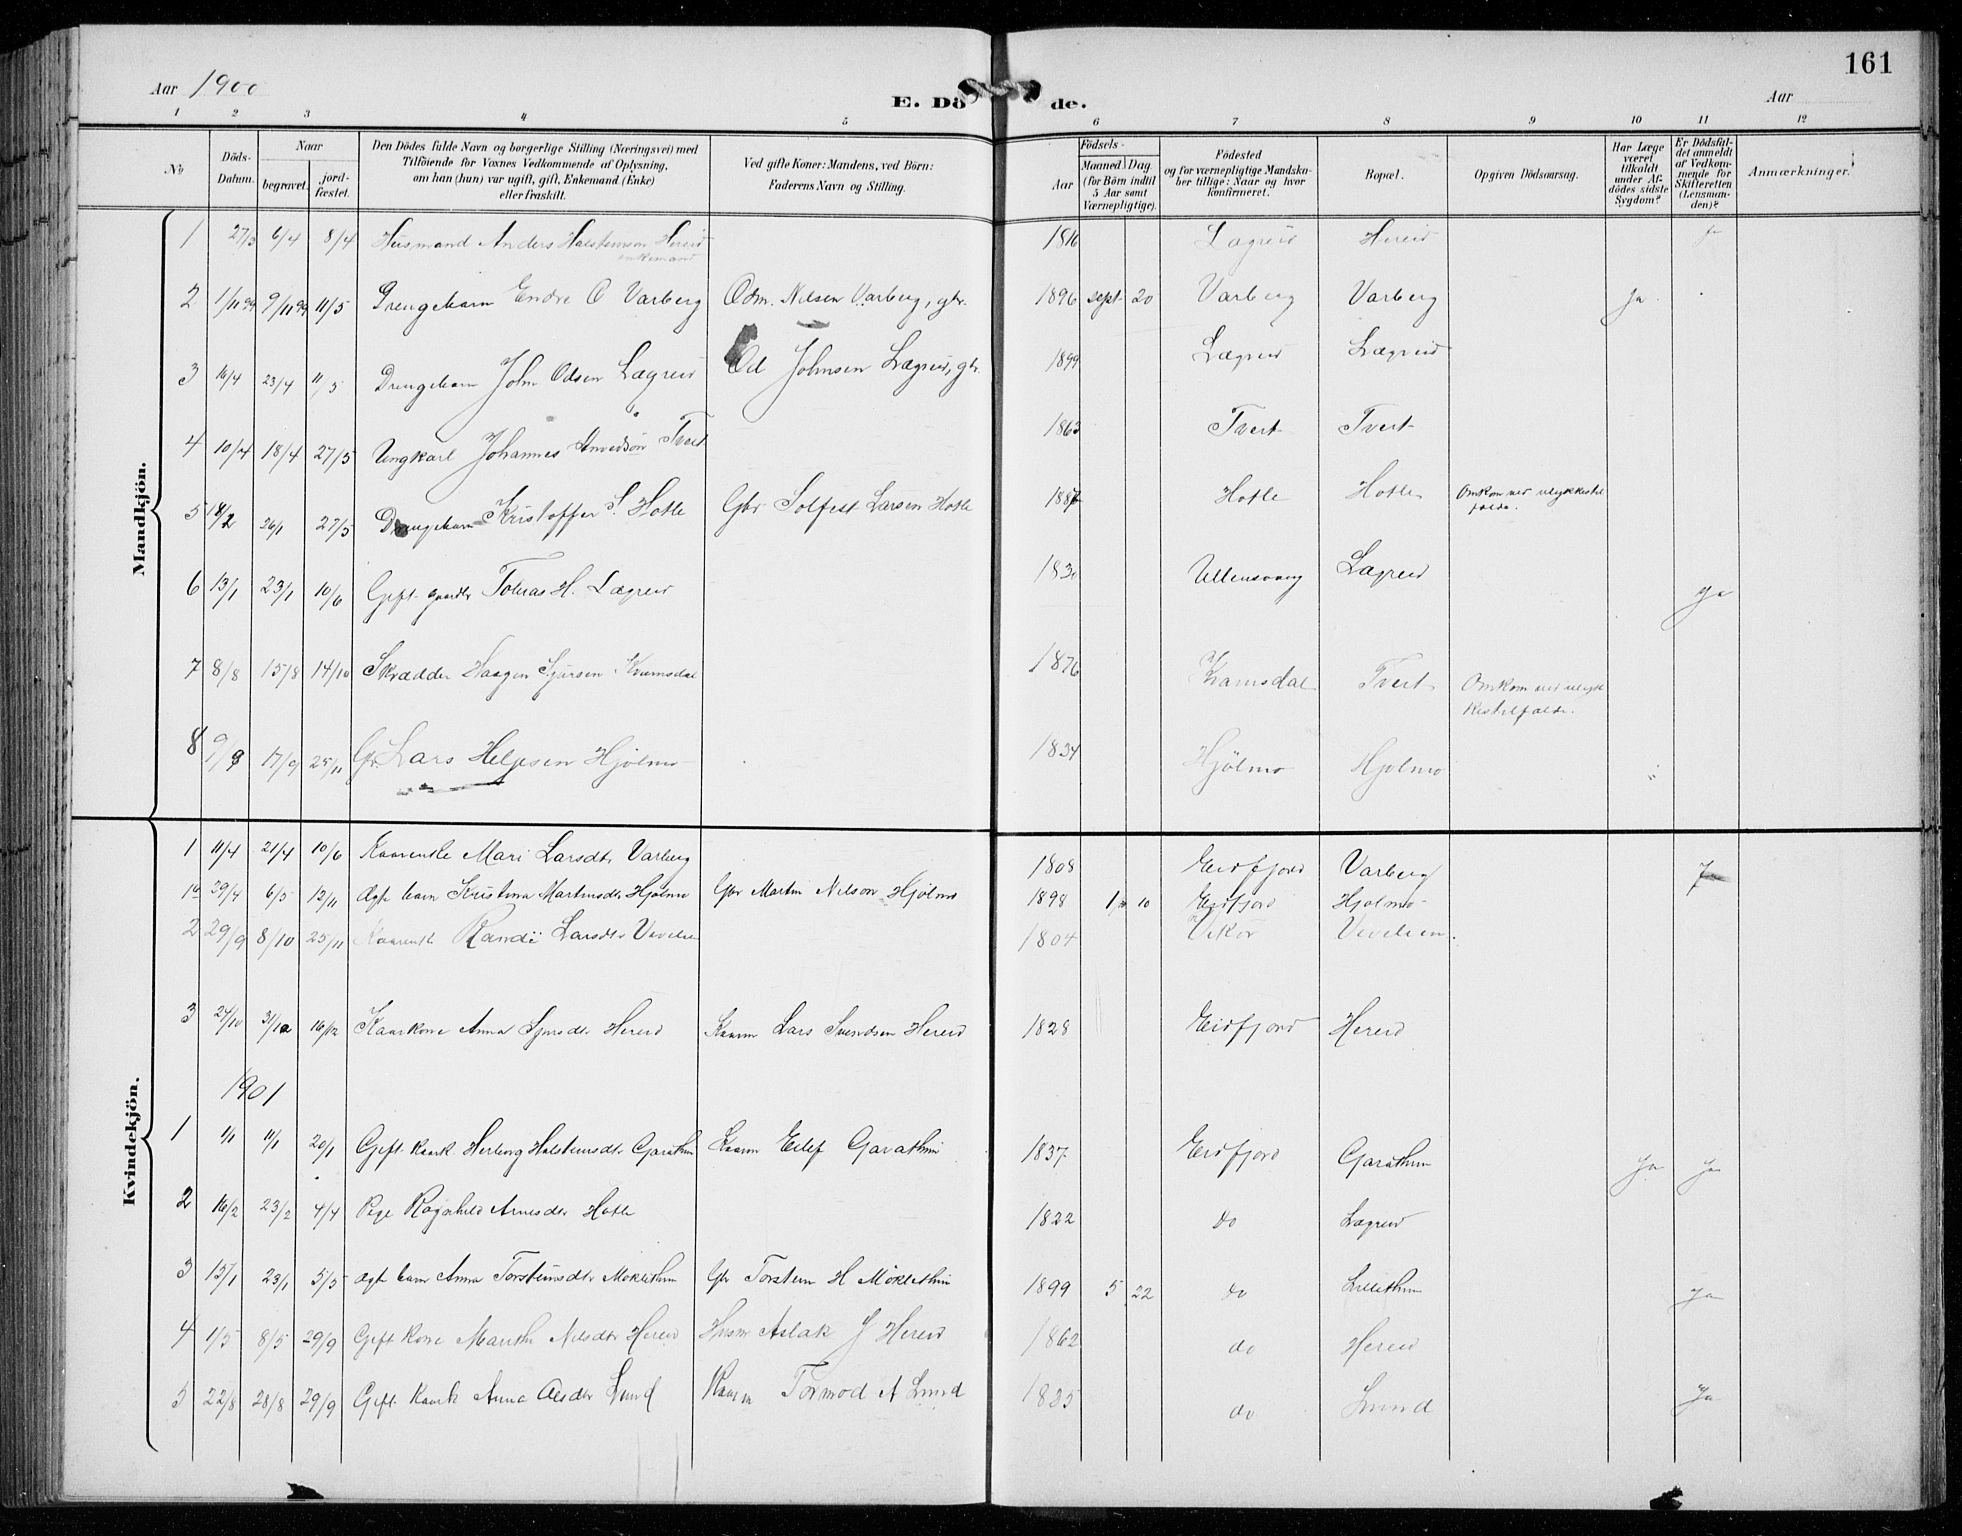 161
Aar 1900
E. Dö de.
Aar
1 2 3 4 5 6 7 8 9 10 11 12
No
Döds-Datum.
Naar
begravet.
jord-fæstet.
Den Dödes fulde Navn og borgerlige Stilling (Næringsvei) med
Tilföiende for Voxnes Vedkommende af Oplysning,
om han (hun) var ugift, gift, Enkemand (Enke)
eller fraskilt.
Ved gifte Koner: Mandens, ved Börn:
Faderens Navn og Stilling.
Födsels-
Aar
Maaned Dag
(for Börn indtil
5 Aar samt
Værnepligtige).
Födested
og for værnepligtige Mandska-
ber tillige: Naar og hvor
konfirmeret.
Bopæl.
Opgiven Dödsaarsag.
Har Læge
været
tilkaldt
under Af-
dödes sidste
Sygdom?
Er Dödsfal-
det anmeldt
af Vedkom-
mende for
Skifteretten
(Lensman-
den)?
Anmærkninger.
Mandkjön.
1 27/3 6/4 8/4 Husmand Anders Halstensen Hereid 1816 Lægreid Hereid Ja
enkemand
2 1/11 99 9/11 99 11/5 Drengebarn Endre O Varberg Odm. Nilsen Varberg, gbr. 1896 sept 20 Varberg Varberg Ja
3 16/4 23/4 11/5 Drengebarn John Odsen Lægreid Od Johnsen Lægreid, gbr. 1899 Lægreid Lægreid
4 10/4 18/4 27/5 Ungkarl Johannes Tveit 1863 Tveit Tveit
5 18/2 26/1 27/5 Drengebarn Kristoffer S. Hotle Gbr Solfest Larsen Hotle Hotle Hotle Omkom ved ulykkestil
fælde.
6 13/1 23/1 10/6 Gift gaardbr Tobias H. Lægreid 1830 Ullensvang Lægreid Ja
7 8/8 15/8 14/10 Skrædder Haagen Sjursen Kvamsdal 1876 Kvamsdal Tveit Omkom ved ulyk
kestilfælde.
8 9/9 17/9 25/11 Gbr Lars Helgesen Hjølmo 1834 Hjølmo Hjølmo
Kvindekjön.
1 11/4 21/4 10/6 Kaarenke Mari Larsdtr Varberg 1808 Eidfjord Varberg
1b 29/4 6/5 12/11 Ægte barn Kristina Martinsdtr Hjølmo Gbr Martin Nilson Hjölmo 1898 10 Eidfjord Hjolmo
2 29/9 8/10 25/11 Kaarenke Randi Larsdtr 1804 Vikør
3 24/10 31/10 16/12 Kaarkone Anna Sjursdtr Hereid Kaarm Lars Svendsen Hereid 1828 Eidfjord Hereid
1901
1 1/1 11/1 20/1 Gift Kaark Herborg Halstensdtr Garathun Kaarm Eilef Garathun 1837 Eidfjord Garathun Ja Ja
2 16/2 23/2 4/4 Pige Ragnhild Arnesdtr Hotle 1822 do Lægreid
3 15/1 23/1 5/5 ægte barn Anna Torsteinsdtr Møklethun Gbr Torstein H Møklethun 1899 5 22 do Lillethun Ja
4 1/5 8/5 29/9 Gift Kone Marita Nilsdtr Hereid Husm Aslak J Hereid 1862 do Hereid
5 22/8 28/8 29/9 Gift Kaark Anna Olsdtr Lund Kaarm Tormod A Lund 1835 do Lund Ja